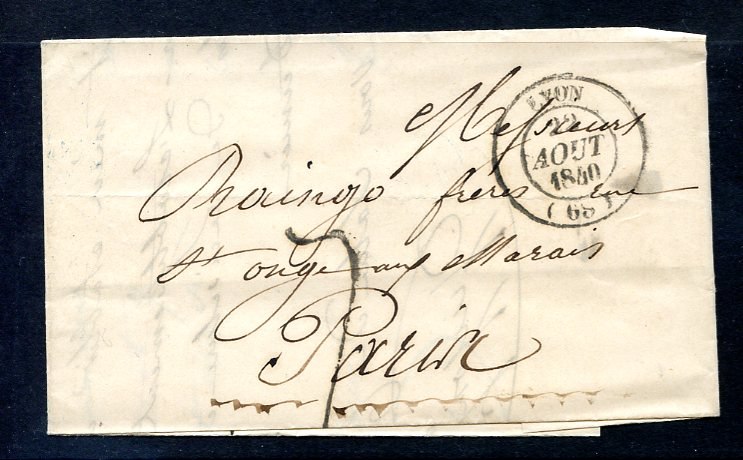 LYON
22
AOUT
1840
(68)
Messieurs
Raingo frères rue
St onge aux Marais
Paris
7